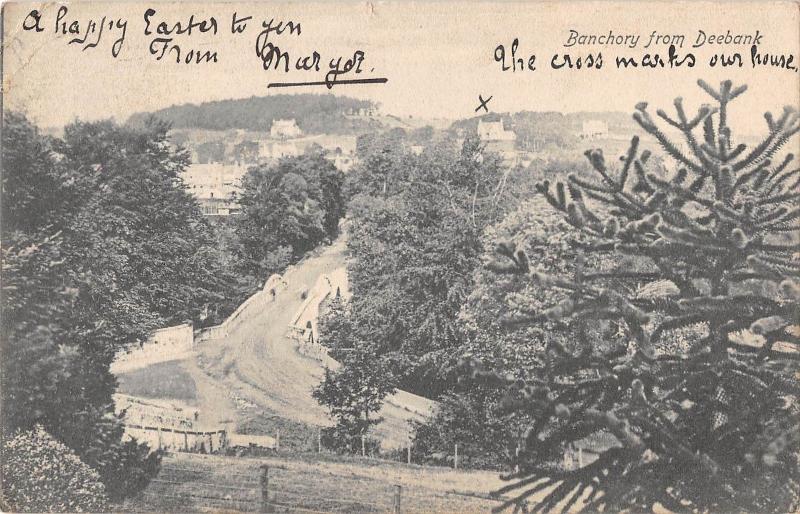 A happy Easter to you
From Margot.
Banchory from Deebank
The cross marks our house.
x